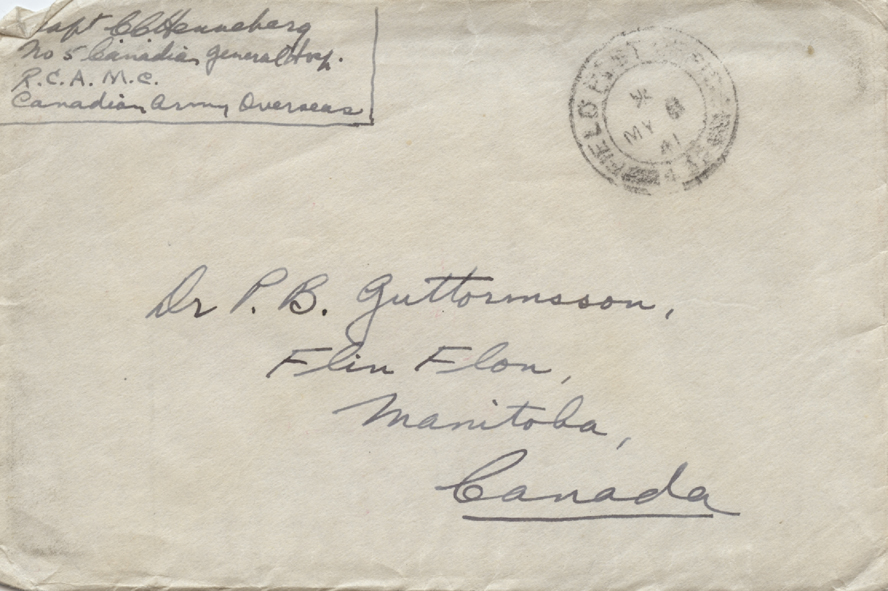 Capt CC Henneberg
No 5 Canadian General Hosp.
R.C.A.M.C.
Canadian Army Overseas
FIELD POST OFFICE
MY 8
41
Dr P. B. Guttormsson,
Flin Flon,
Manitoba,
Canada